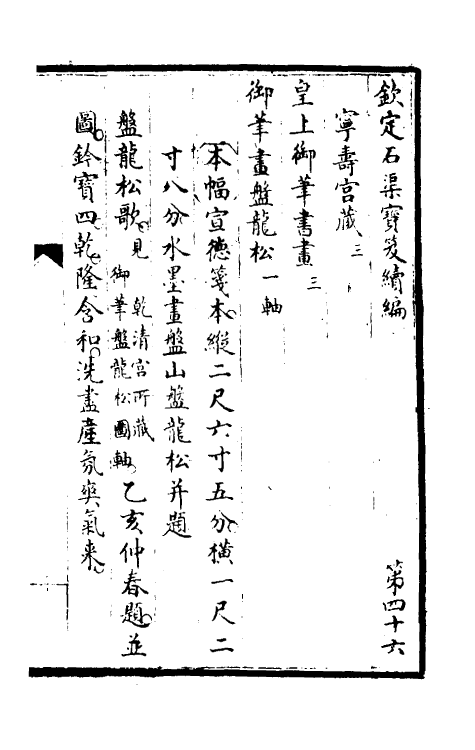 欽定石渠寶笈續編 第四十六
寧壽宮藏三
皇上御筆書畫三
御筆畫盤龍松一軸
本幅宣德箋本縱二尺六寸五分橫一尺二
寸八分水墨畫盤山盤龍松并題
盤龍松歌見乾清宮所藏御筆盤龍松圖軸乙亥仲春題並
圖鈐寶四乾隆含和洗盡塵氛爽氣来